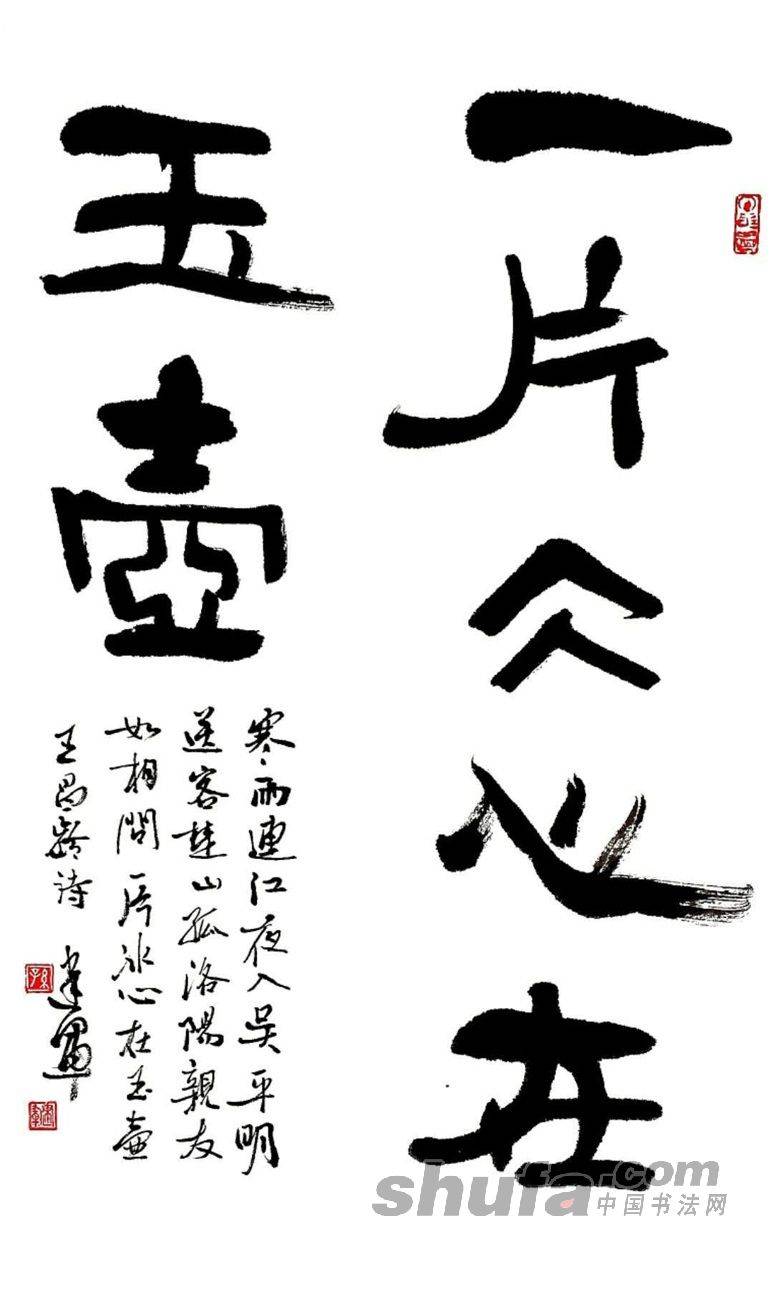 一片仌心在
玉壺
寒雨連江夜入吳平明
送客楚山孤洛陽親友
如相問一片冰心在玉壺
王昌齡诗
shufa.com
中国书法网